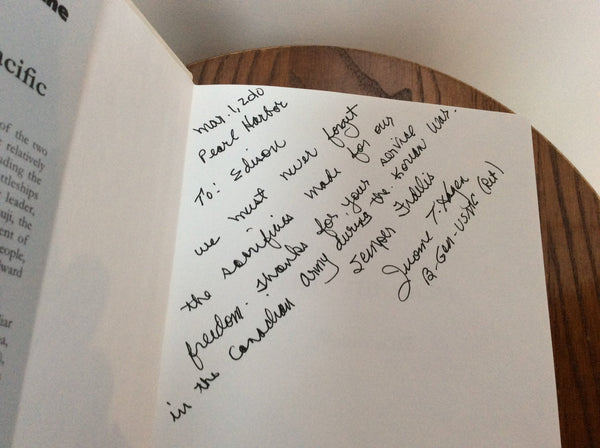 me
cific
of the two
relatively
ding the
tleships
leader,
uji, the
ent of
eople,
dward
iar
a.
Mar. 1, 2010
Pearl Harbor
To: Edison
we must never forget
the sacrifices made for our
freedom. Thanks for your service
in the Canadian Army during the Korean War.
Semper Fidelis
Jerome T.
B. Gen. USMC (Ret)